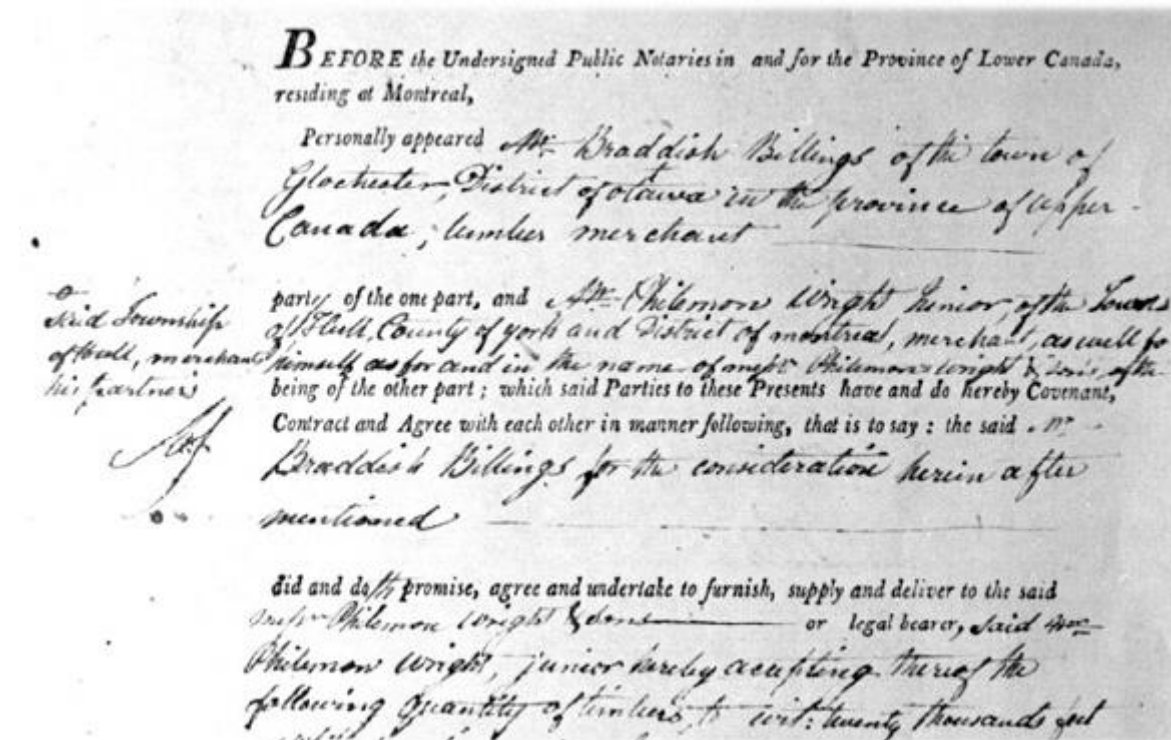 BEFORE the Undersigned Public Notaries in and for the Province of Lower Canada,
residing at Montreal,
Personally appeared Mr. Braddish Billings of the town of
Glochester, District of Otawa in the province of Upper
Canada, lumber merchant
party of the one part, and Mr. Philemon Wright Junior, of the Town
of Hull, County of york and District of montreal, merchant, as well for
himself as for and in the name of Messrs Philemon Wright & Sons of the
said Township
of Hull, merchant
his partners
being of the other part; which said Parties to these Presents have and do hereby Covenant,
Contract and Agree with each other in manner following, that is to say: the said Mr
Braddish Billings for the consideration herein after
mentioned
did and doth promise, agree and undertake to furnish, supply and deliver to the said
Messrs Philemon Wright & Sons or legal bearer, said Mr
Philemon Wright, junior hereby accepting thereof the
following Quantity of timbers, to wit: twenty thousands feet